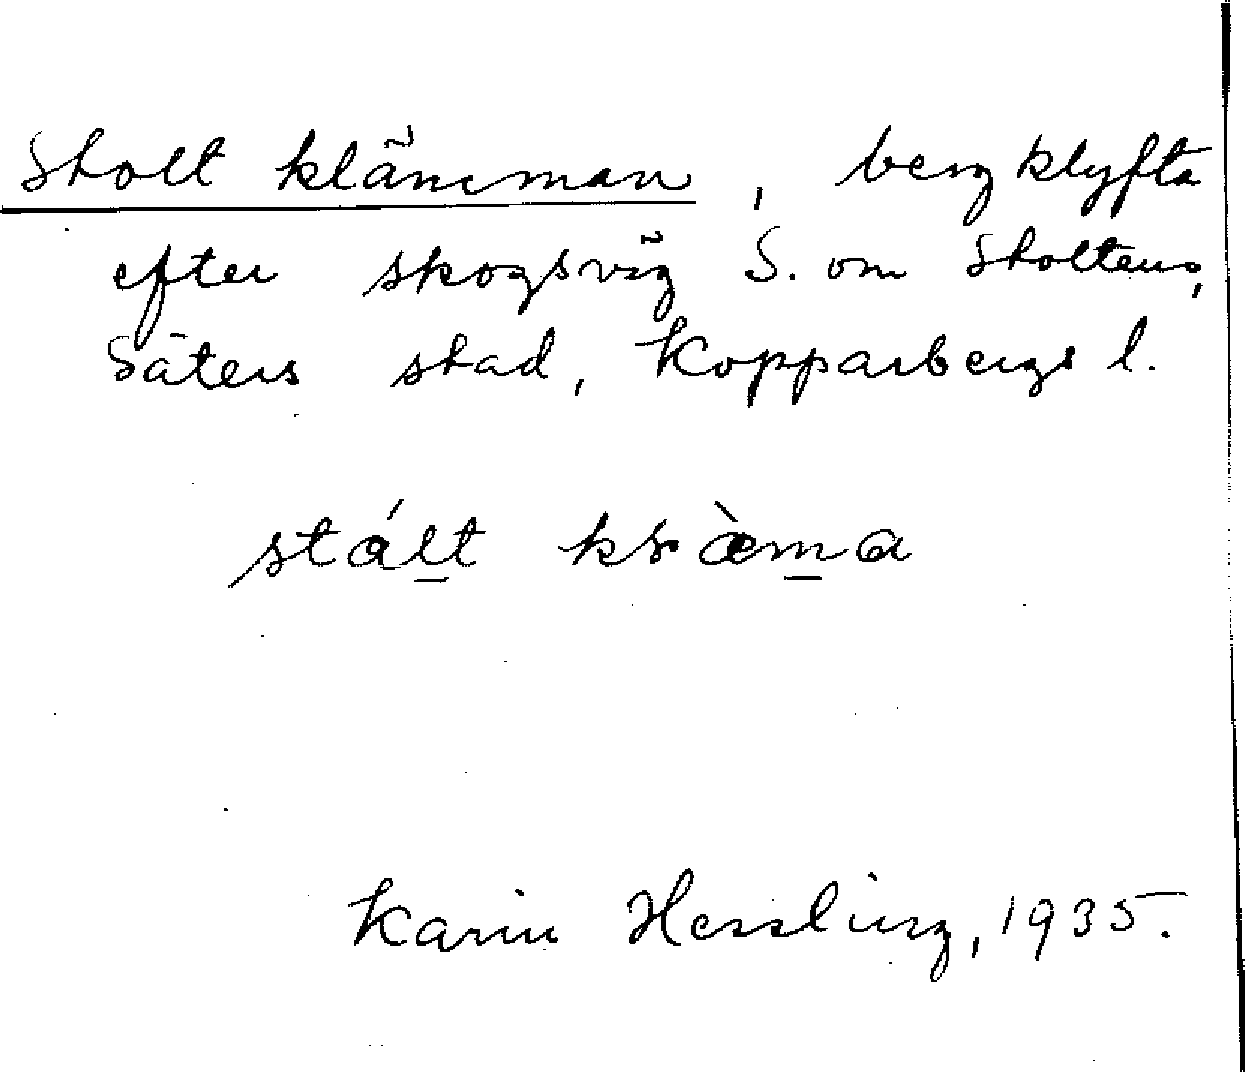 Stolt klämman, bergklyfta
efter skogsväg S. om Stoltens,
Säters stad, Kopparbergs l.
stált kràma
Karin Hessling, 1935.